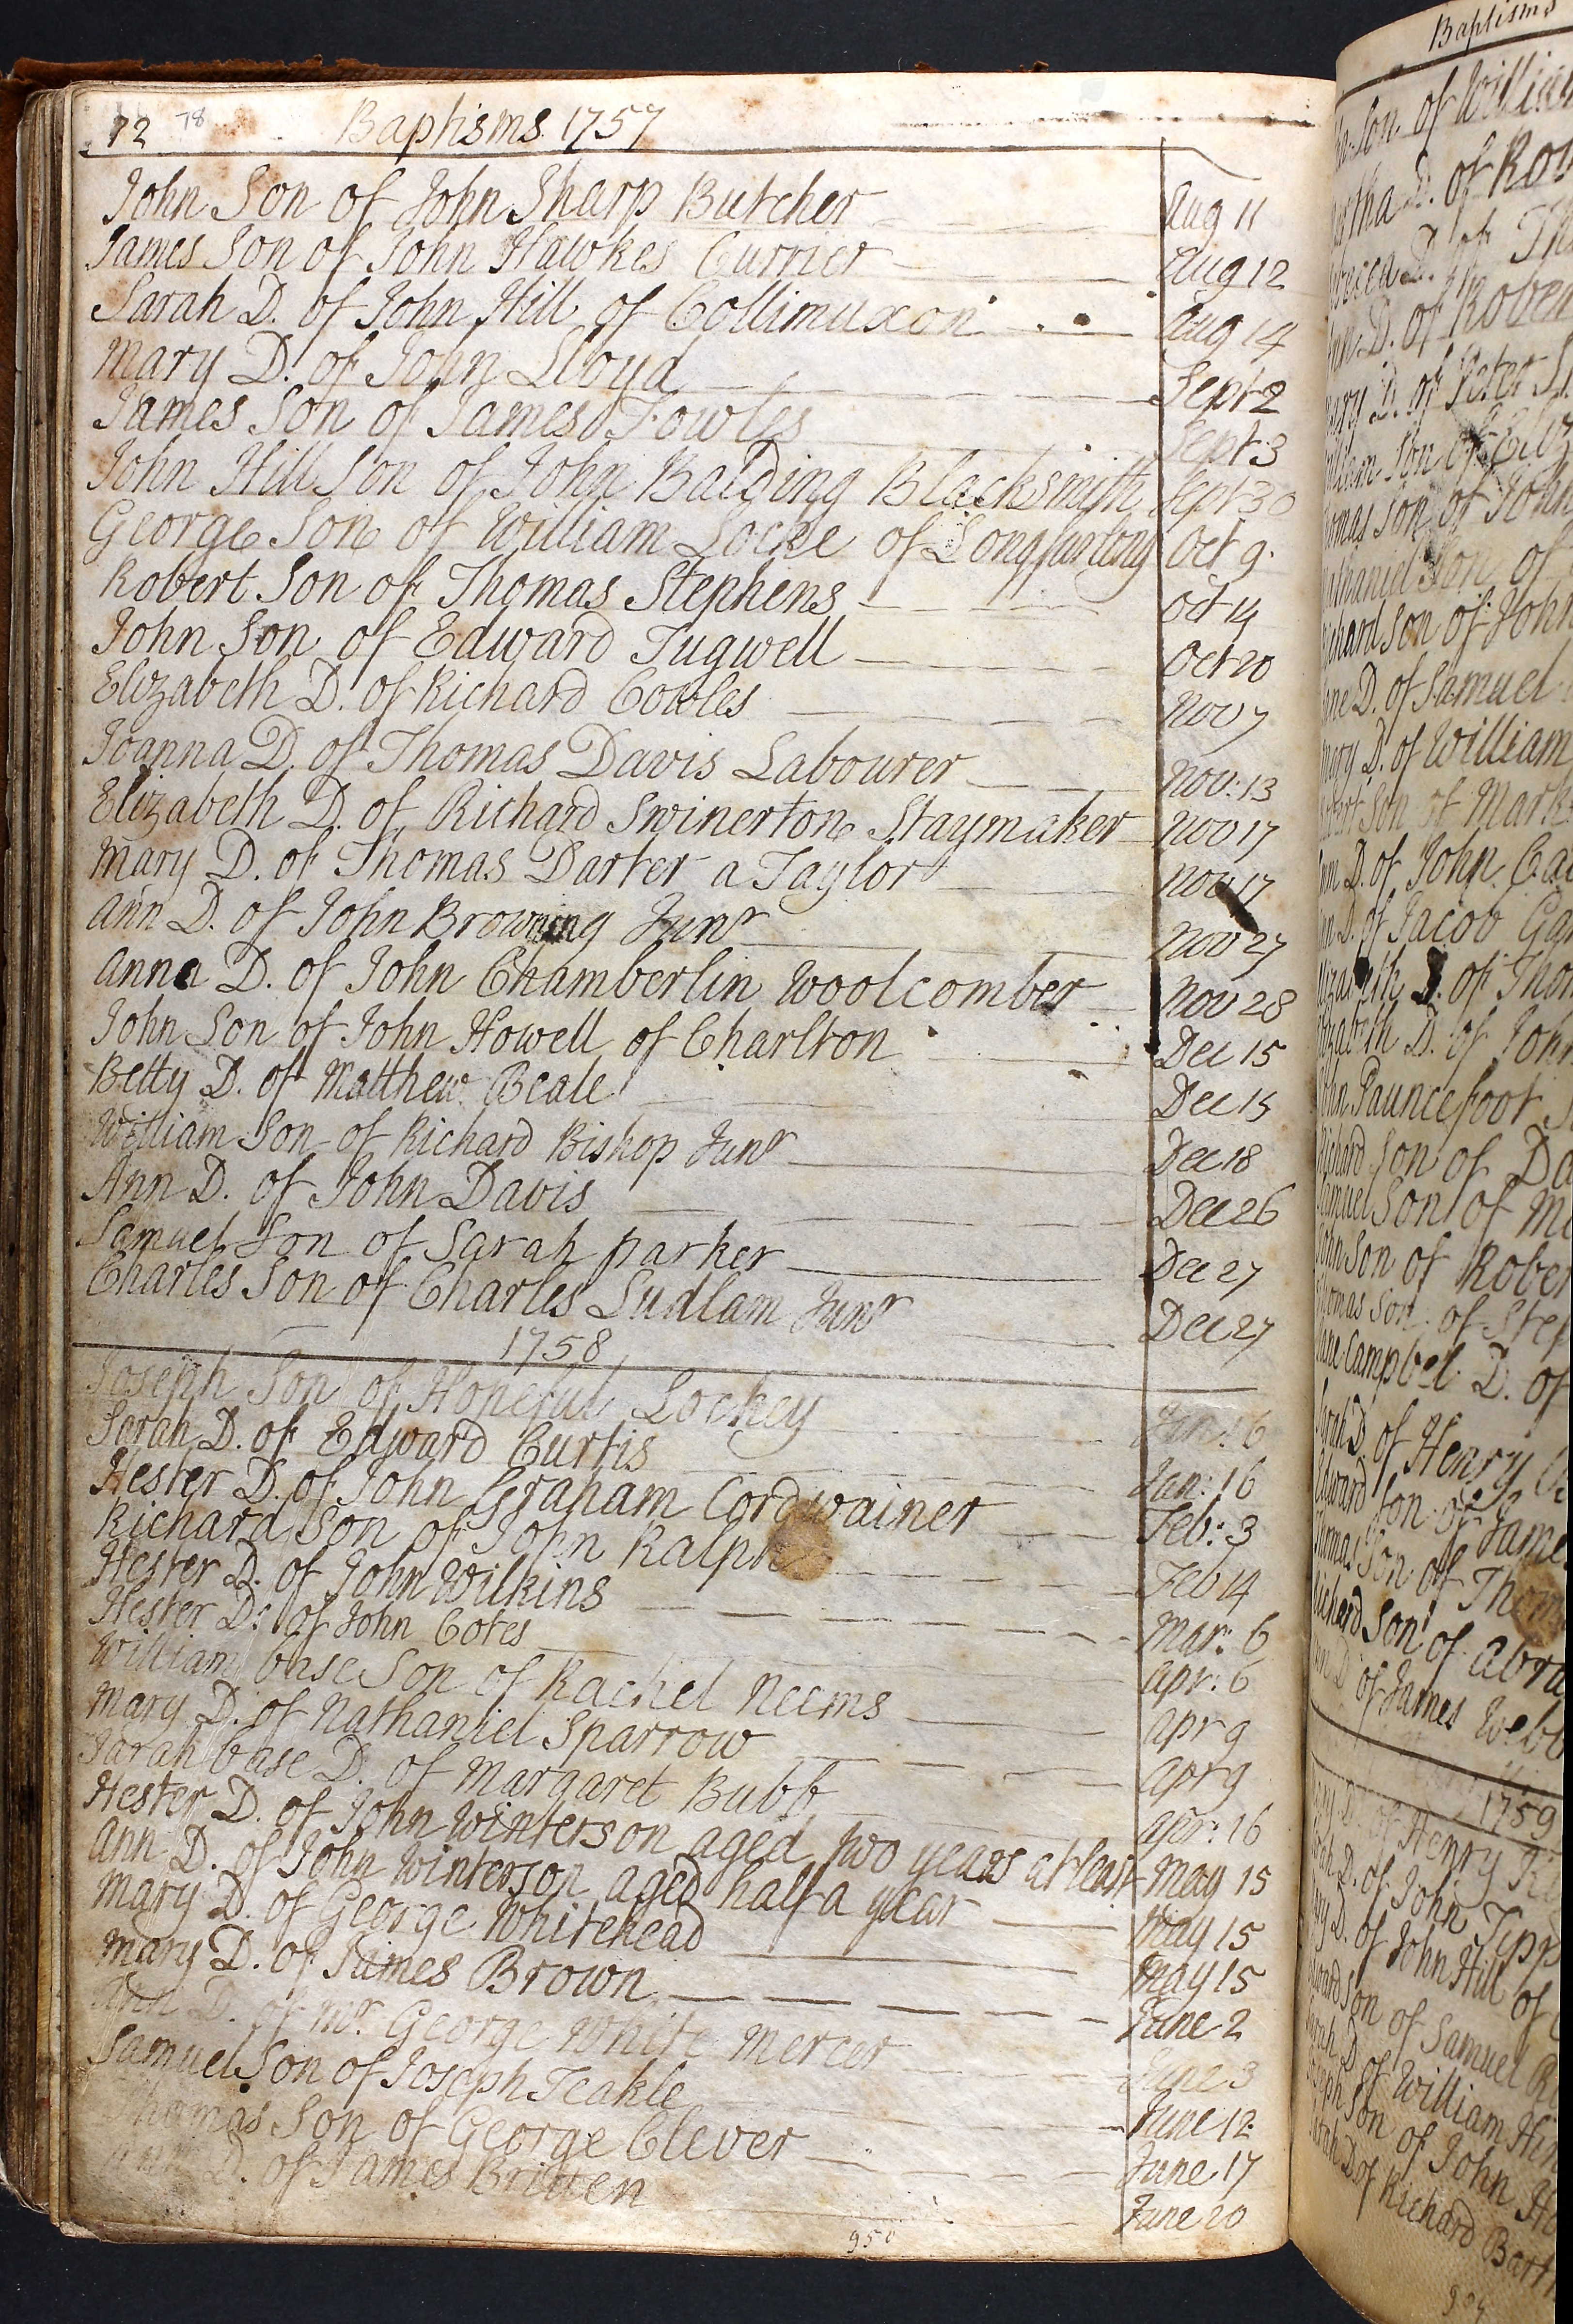 72 78 Baptisms 1757
John Son of John Sharp Butcher Aug 11
James Son of John Hawkes Currier Aug 12
Sarah D. of John Hill of Collimuxon Aug 14
Mary D. of John Lloyd Sept 2
James Son of James Fowles Sept: 3
John Hill Son of John Balding Blacksmith Sept 30
George Son of William Locke of Longfurlong Oct 9.
Robert Son of Thomas Stephens Oct 14
John Son of Edward Tugwell Oct 20
Elizabeth D. of Richard Cowles Nov 7
Joanna D. of Thomas Davis Labourer Nov: 13
Elizabeth D. of Richard Swinerton Staymaker Nov 17
Mary D. of Thomas Darter a Taylor Nov 17
Ann D. of John Browning Junr Nov 27
Anna D. of John Chamberlin Woolcomber Nov 28
John Son of John Howell of Charlton Dec 15
Betty D. of Matthew Beale Dec 15
William Son of Richard Bishop Junr Dec 18
Ann D. of John Davis Dec 26
Samuel Son of Sarah Parker Dec 27
Charles Son of Charles Ludlam Junr Dec 27
1758
Joseph Son of Hopeful Lockey Jan: 6
Sarah D. of Edward Curtis Jan: 16
Hester D. of John Graham Cordwainer Feb: 3
Richard Son of John Ralph Feb 14
Hester D. of John Wilkins Mar: 6
Hester D: of John Cotes Apr: 6
William base Son of Rachel Neems Apr 9
Mary D. of Nathaniel Sparrow Apr 9
Sarah base D. of Margaret Bubb Apr: 16
Hester D. of John Winterson aged two years at least May 15
Ann D. of John Winterson aged half a year May 15
Mary D. of George Whitehead May 15
Mary D. of James Brown June 2
Ann D. of Mr. George White Mercer June 3
Samuel Son of Joseph Teakle June 12
Thomas Son of George Clever June 17
D. of James Britten June 20
950
Baptisms
Son of William
D. of
D. of
D. of
D. of Peter
Son of
Son of John
Son of
Son of John
D. of Samuel
D. of William
Son of Mark
D. of John
D. of Jacob
D. of
D. of John
Pauncefoot
Son of
Son of
Son of
Son of
Campbel D. of
D. of Henry
Son of
Son of
Son of
D of James Webb
1759
D. of Henry
D. of John
D. of John Hill of
Son of Samuel
D of William
Son of John
D of Richard